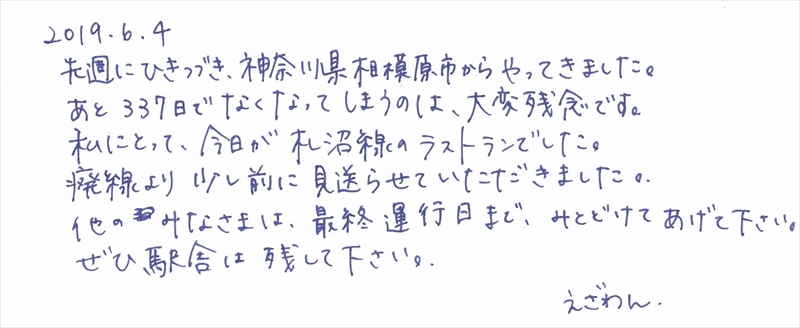 2019.6.4
先週にひきつづき、神奈川県相模原市からやってきました。
あと337日でなくなってしまうのは、大変残念です。
私にとって、今日が札沼線のラストランでした。
廃線より少し前に見送らせていただきました。
他のみなさまは、最終運行日まで、みとどけてあげて下さい。
ぜひ駅舎は残して下さい。
えざわん.